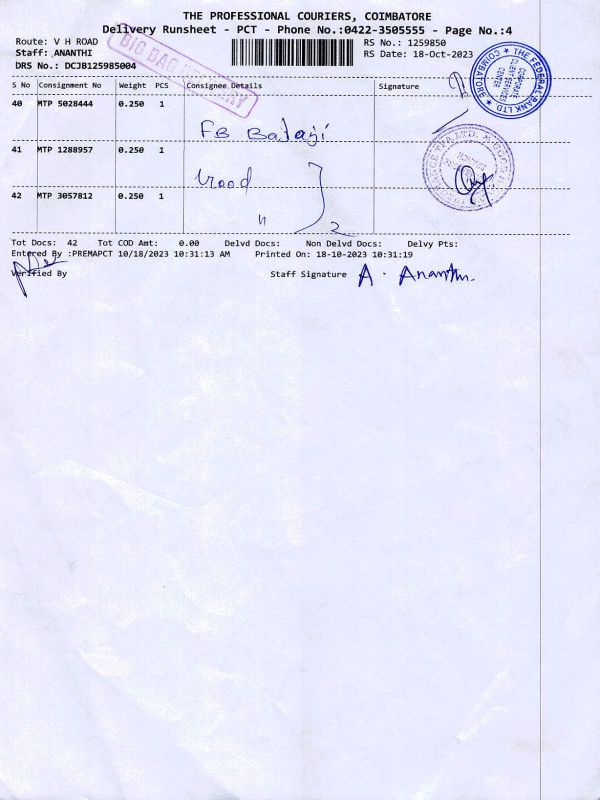 THE PROFESSIONAL COURIERS, COIMBATORE
Delivery Runsheet - PCT - Phone No.:0422-3505555 - Page No.:4
Route: V H ROAD RS No.: 1259850
Staff: ANANTHI RS Date: 18-Oct-2023
DRS No.: DCJB125985004
BIG BAG
THE FEDERAL BANK LTD
COIMBATORE
CORPORATE
CLIENT SERVICES
CENTER
S No Consignment No Weight PCS Consignee Details Signature
40 MTP 5028444 0.250 1
FB Balaji
41 MTP 1288957 0.250 1
42 MTP 3057812 0.250 1
" 2
Tot Docs: 42 Tot COD Amt: 0.00 Delvd Docs: Non Delvd Docs: Delvy Pts:
Entered By :PREMAPCT 10/18/2023 10:31:13 AM Printed On: 18-10-2023 10:31:19
Verified By Staff Signature A. Ananthi.